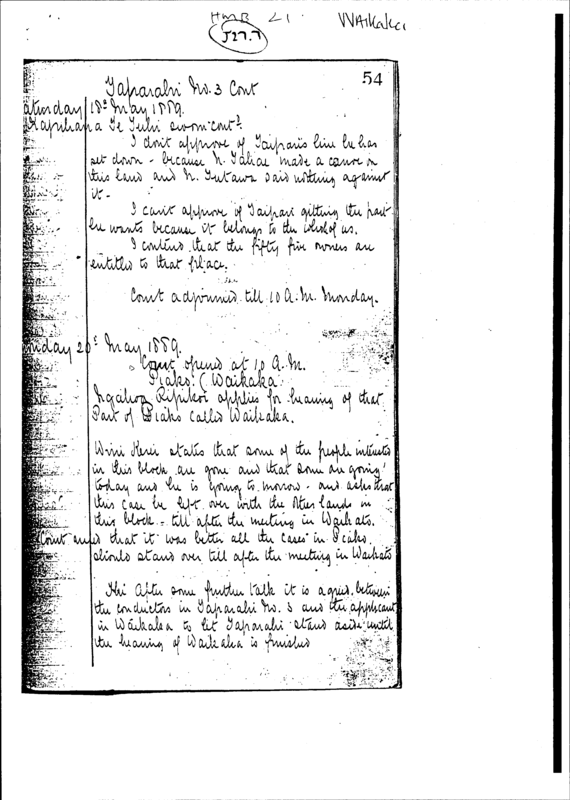 HMB 21 WAIKAKA
J27.7
54
Taparahi No. 3 Cont
aturday 18th May 1889.
Hapihana Te Tuhi sworn cont.
I don't approve of Taipari's line he has
set down - because N. Tahae made a canoe on
this land and N. Tutawa said nothing against
it -
I can't approve of Taipari getting the part
he wants because it belongs to the whole of us.
I contend that the fifty five owners are
entitled to that place.
Court adjourned till 10 A.M. Monday.
onday 20th May 1889.
Court opened at 10 A.M.
Piako: (Waikaka
Ripikoi applies for hearing of that
Part of Piako called Waikaka.
Wini Kerei states that some of the people interested
in this block are gone and that some are going
today and he is going to morrow - and asks that
this case be left over with the other lands in
this block - till after the meeting in Waikato.
Court that it was better all the cases in Piako
should stand over till after the meeting in Waikato
After some further talk it is agreed between
the conductors in Taparahi No. 3 and the applicant
in Waikaka to let Taparahi stand aside until
the hearing of Waikaka is finished